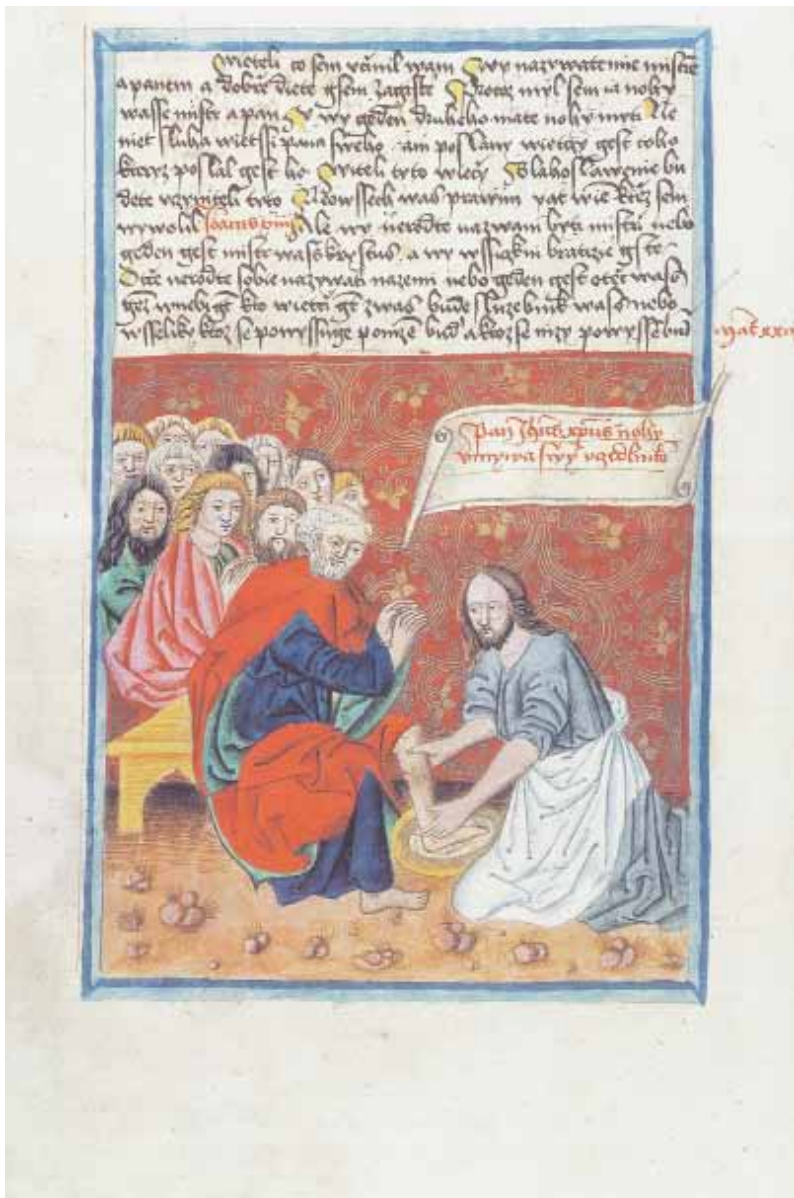 wieteli co sem vcinil wam Wy nazywate mie mistrē
a panem a dobrze diete gsem zagiste Protoz myl sem ia nohy
wasse mistr a pan y wy geden druheho mate nohy myti Ne
niet sluha wietssi pana sweho ani poslany wietczy gest toho
kteryz poslal gest ho Wieteli tyto wieczy Blahoslaweni bu
dete vczyniteli tyto Ne o wssech was prawim yat wie kterz sem
wywolil Ale wy nerodte nazwani byti mistri nebo
geden gest mistr was krystus a wy wssiczkni bratrzie gste
Otcze nerodte sobie nazywati na zemi nebo geden gest otecz was
genz w nebi gest kto wietci gt z was bude sluzebnik was nebo
wsseliky ktoz se powyssuge ponize bud a ktoz se nizy powyssē bud
Mat xxiii
Pan xpus nohy
vmywa swy vczedlniko